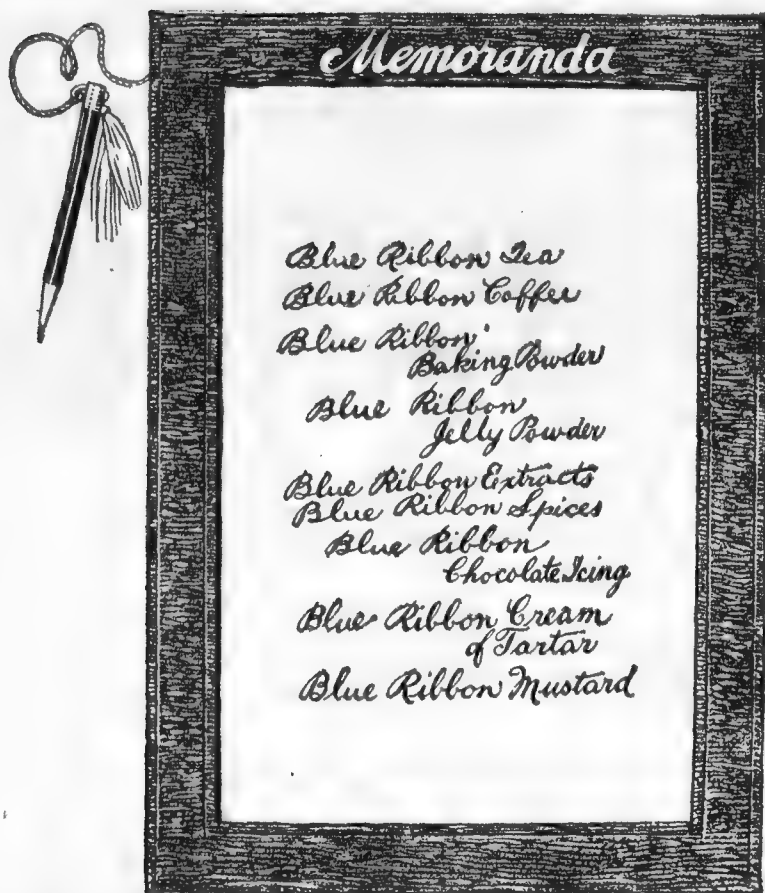 Memoranda
Blue Ribbon Tea
Blue Ribbon Coffee
Blue Ribbon
Baking Powder
Blue Ribbon
Jelly Powder
Blue Ribbon Extracts
Blue Ribbon Spices
Blue Ribbon
Chocolate Icing
Blue Ribbon Cream
of Tartar
Blue Ribbon Mustard